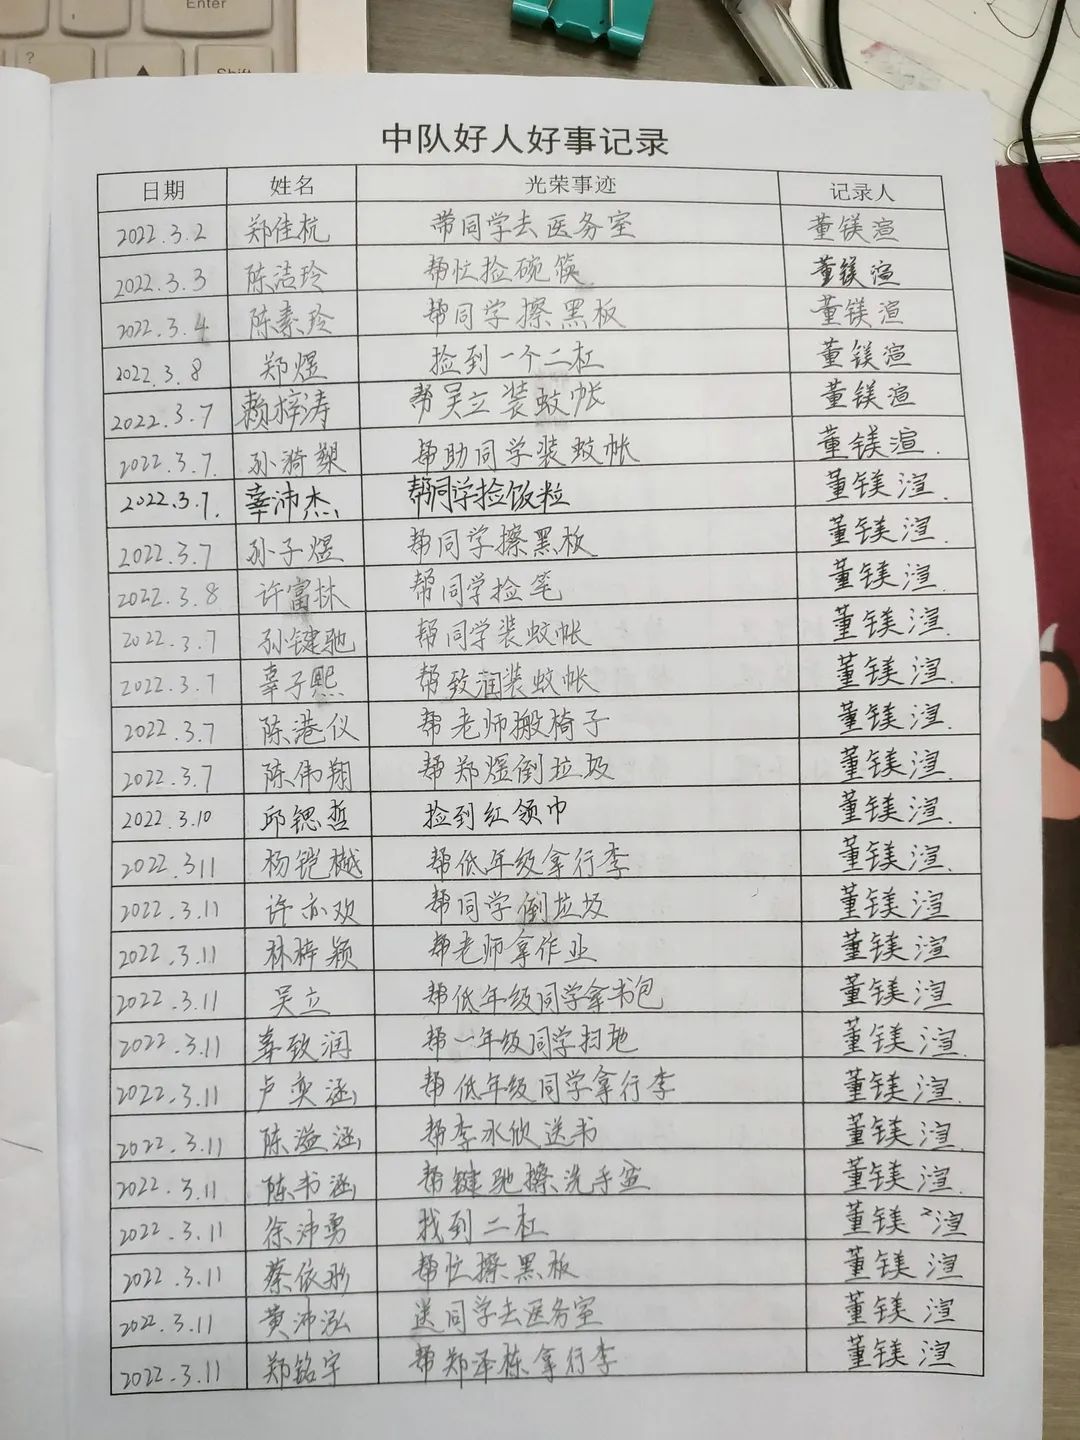 Enter
?
Shift
中队好人好事记录
日期 姓名 光荣事迹 记录人
2022.3.2 郑佳杭 带同学去医务室 董镁渲
2022.3.3 陈洁玲 帮忙捡碗筷 董镁渲
2022.3.4 陈素玲 帮同学擦黑板 董镁渲
2022.3.8 郑煜 捡到一个二杠 董镁渲
2022.3.7 赖梓涛 帮吴立装蚊帐 董镁渲
2022.3.7. 孙漪塑 帮助同学装蚊帐 董镁渲.
2022.3.7. 辜沛杰 帮同学捡饭粒 董镁渲.
2022.3.7 孙子煜 帮同学擦黑板 董镁渲.
2022.3.8 许富林 帮同学捡笔 董镁渲.
2022.3.7 孙键驰 帮同学装蚊帐 董镁渲.
2022.3.7 辜子熙 帮致润装蚊帐 董镁渲.
2022.3.7 陈港仪 帮老师搬椅子 董镁渲.
2022.3.7 陈伟翔 帮郑煜倒垃圾 董镁渲.
2022.3.10 邱锶哲 捡到红领巾 董镁渲.
2022.311 杨铠樾 帮低年级拿行李 董镁渲.
2022.3.11 许亦欢 帮同学倒垃圾 董镁渲
2022.3.11 林梓颖 帮老师拿作业 董镁渲
2022.3.11 吴立 帮低年级同学拿书包 董镁渲
2022.3.11 辜致润 帮一年级同学扫地 董镁渲.
2022.3.11 卢奕涵 帮低年级同学拿行李 董镁渲.
2022.3.11 陈溢涵 帮李永欣送书 董镁渲.
2022.3.11 陈书涵 帮键驰擦洗手室 董镁渲.
2022.3.11 徐沛勇 找到二杠 董镁渲
2022.3.11 蔡依彤 帮忙擦黑板 董镁渲
2022.3.11 黄沛泓 送同学去医务室 董镁渲
2022.3.11 郑铭宇 帮郑泽栋拿行李 董镁渲